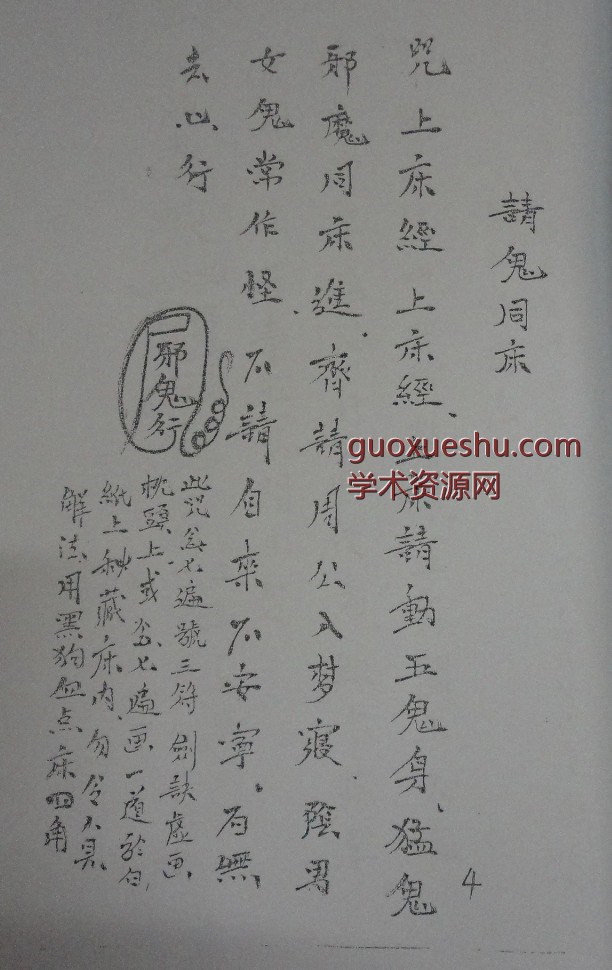 請鬼同床
咒上床經上床經、上床請動五鬼身、猛鬼
邪魔同床進、齊請周公入梦寢、陰男
女鬼常作怪、不請自来不安寧。有無
去心行
邪鬼行
此咒念七遍號三符劍訣虛画
枕頭上或念七遍画一道於白
紙上秘藏床内、勿令人見
解法用黑狗血点床四角
4
guoxueshu.com
学术资源网